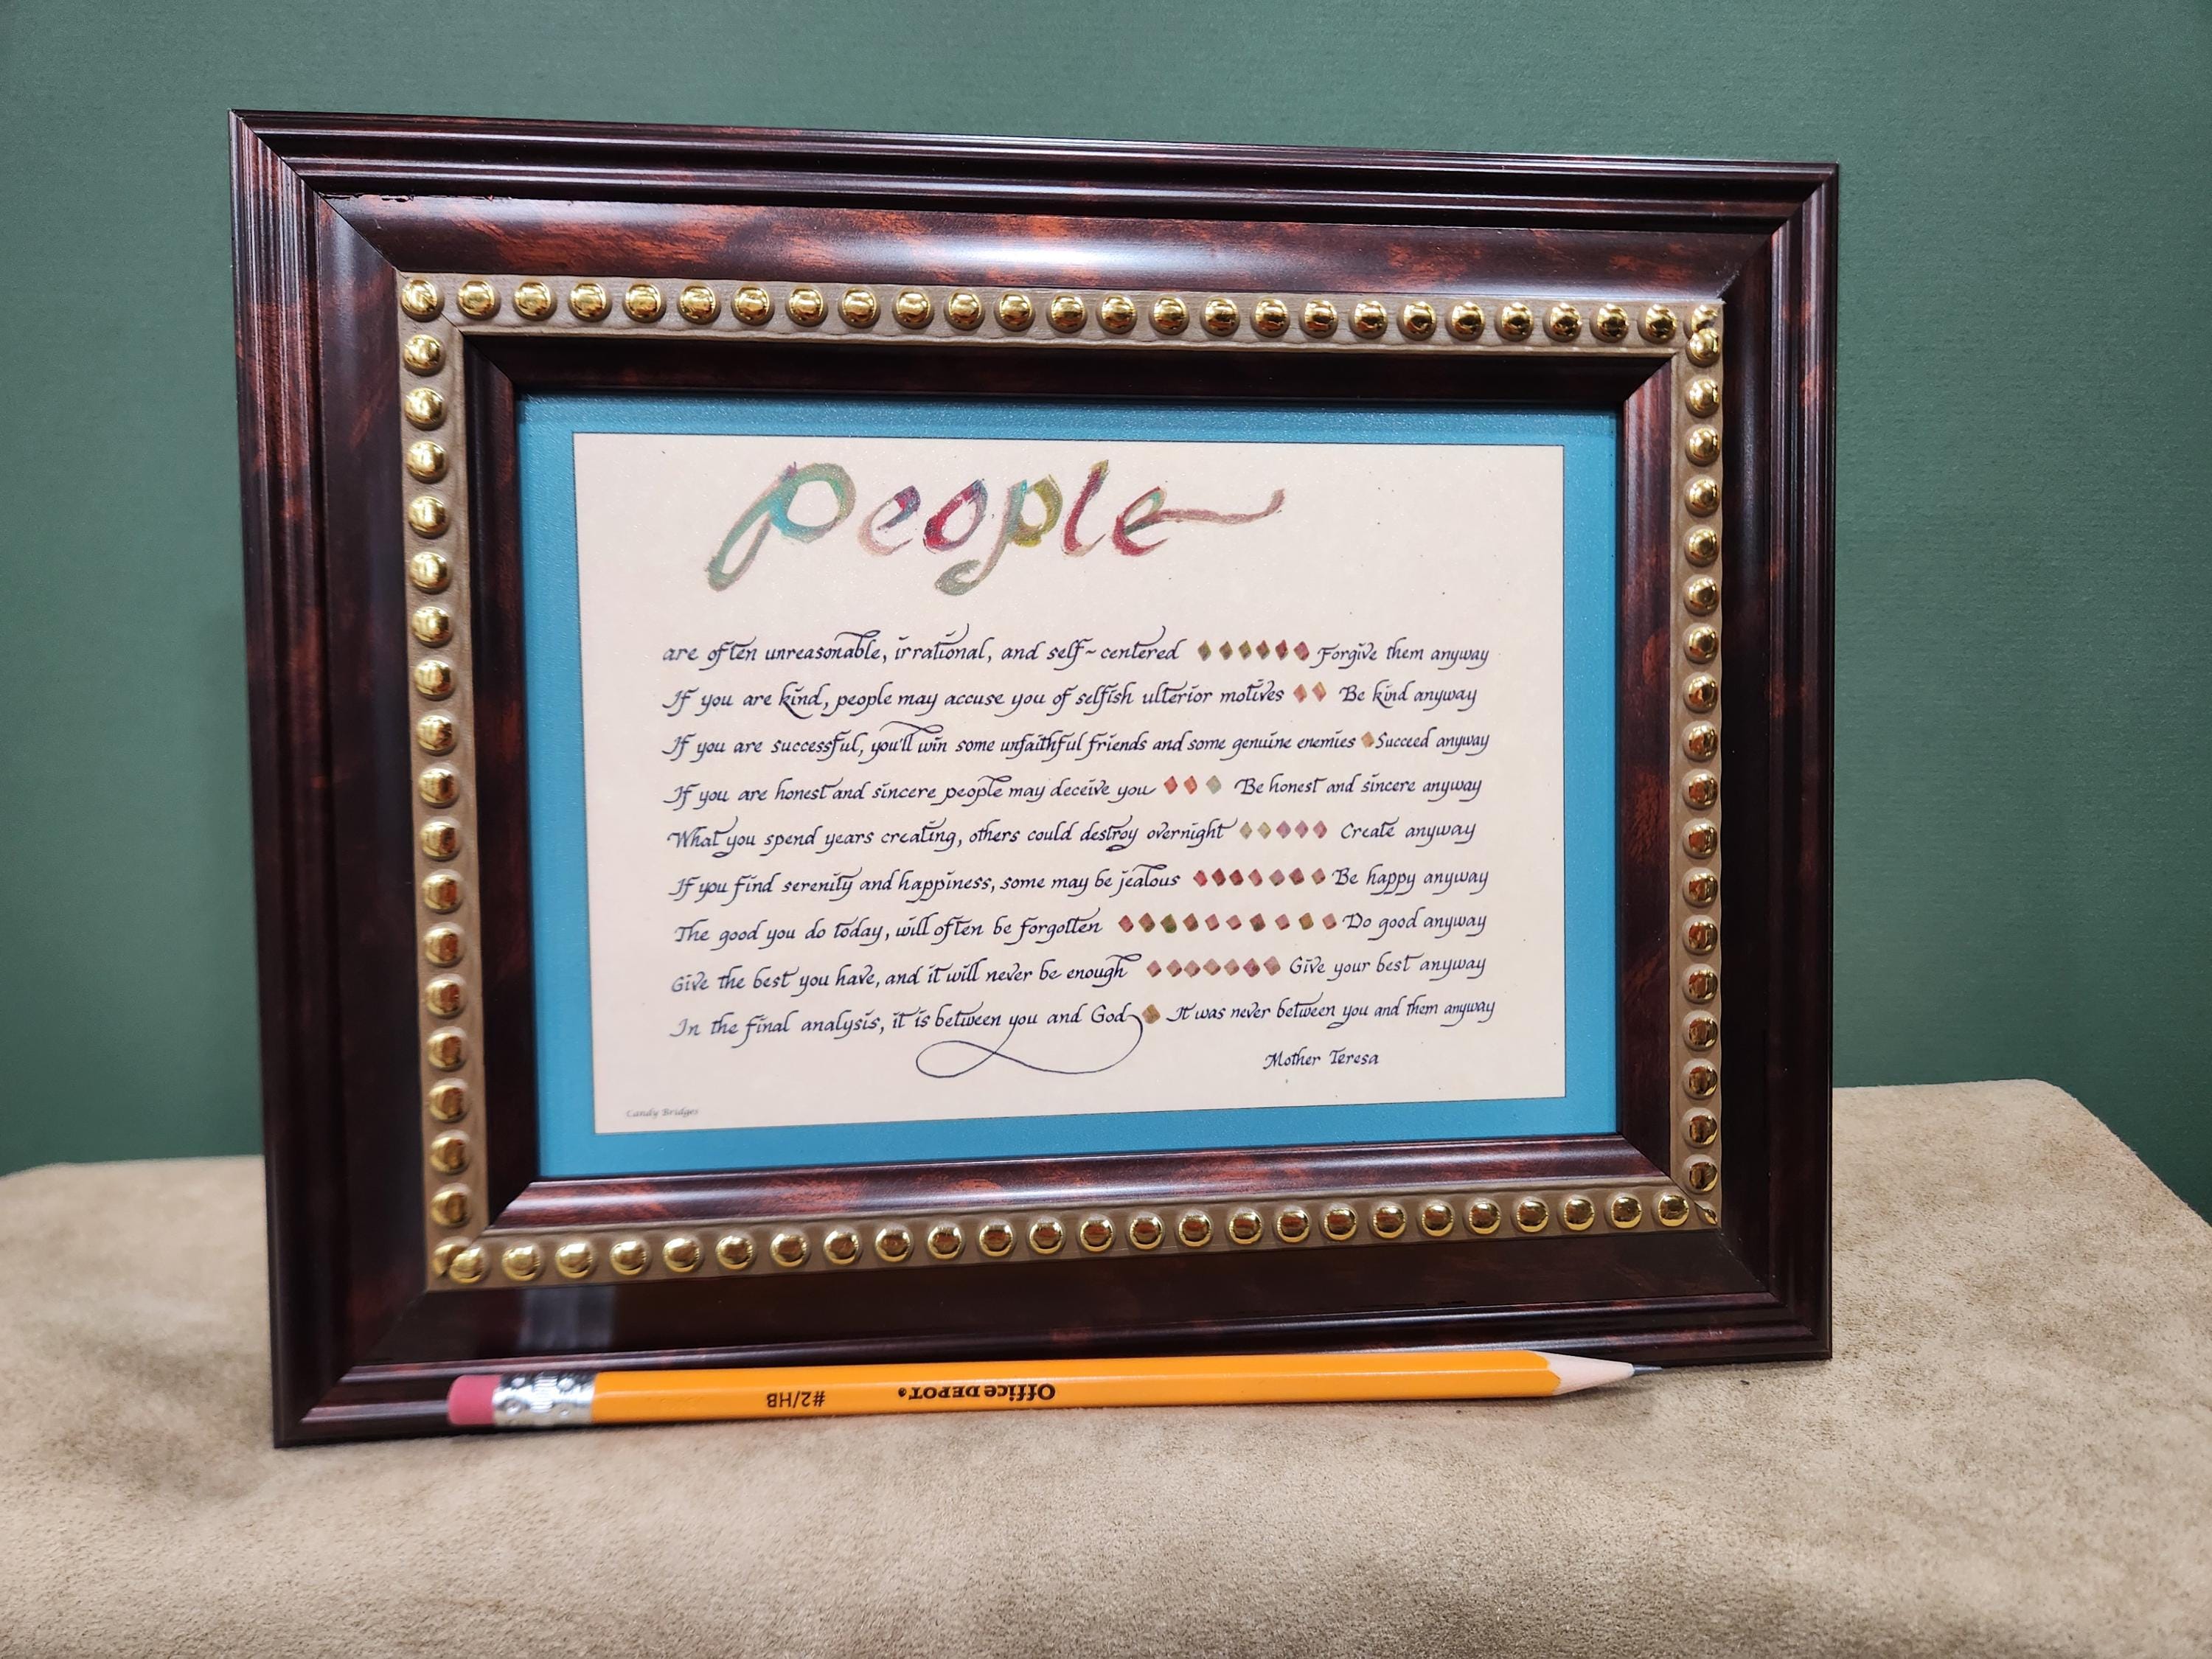 People
are often unreasonable, irrational, and self-centered Forgive them anyway
If you are kind, people may accuse you of selfish ulterior motives Be kind anyway
If you are successful, you'll win some unfaithful friends and some genuine enemies Succeed anyway
If you are honest and sincere people may deceive you Be honest and sincere anyway
What you spend years creating, others could destroy overnight Create anyway
If you find serenity and happiness, some may be jealous Be happy anyway
The good you do today, will often be forgotten Do good anyway
Give the best you have, and it will never be enough Give your best anyway
In the final analysis, it is between you and God It was never between you and them anyway
Mother Teresa
Candy Bridges
Office DEPOT® #2/HB